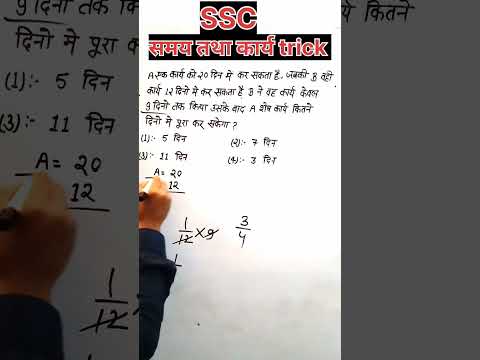 SSC
समय तथा कार्य trick
A एक कार्य को 20 दिन में कर सकता है, जबकी B वही
कार्य 12 दिनो में कर सकता है B ने वह कार्य केवल
9 दिनो तक किया उसके बाद A शेष कार्य कितने
दिनो में पूरा कर सकेगा ?
(1):- 5 दिन (2):- 7 दिन
(3):- 11 दिन (4):- 3 दिन
A = 20
12
1/12 × 9 3/4
1
9 दिनो तक किया उसके बाद A शेष कार्य कितने
दिनो मे पूरा
(1):- 5 दिन
(3):- 11 दिन
A = 20
12
1/12